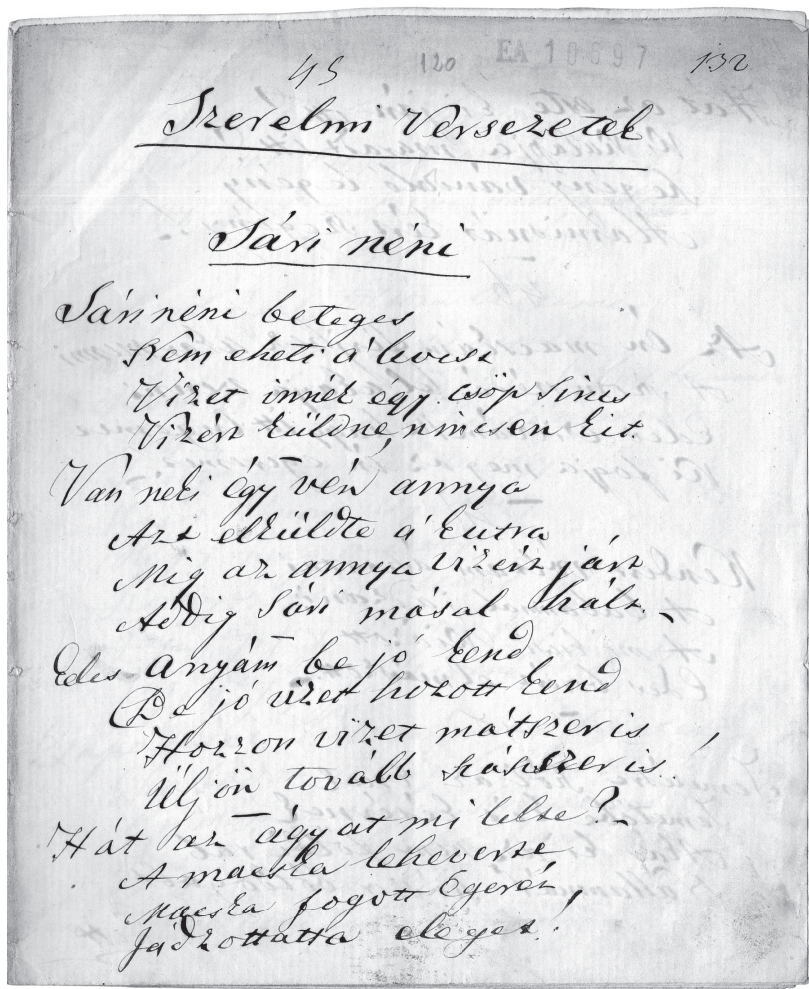 45 120 EA 10697 132
Szerelmi Versezetek
Sári néni
Sári néni beteges
Nem eheti á húst
Vizet innék égy csöp sincs
Vizért küldne, nincsen kit.
Ván neki égy vén annya
Azt elküldte á kutra
Mig az annya vizért járt
Áddig Sári másal hált
Édes anyám be jó kend
Be jó vizet hozott kend
Hozzon vizet mátszer is
Üljön tovább százszer is!
Hát az ágyat mi lelte?
A macska leheverte
Macska fogott Egerét,
Jádzottatta eleget!